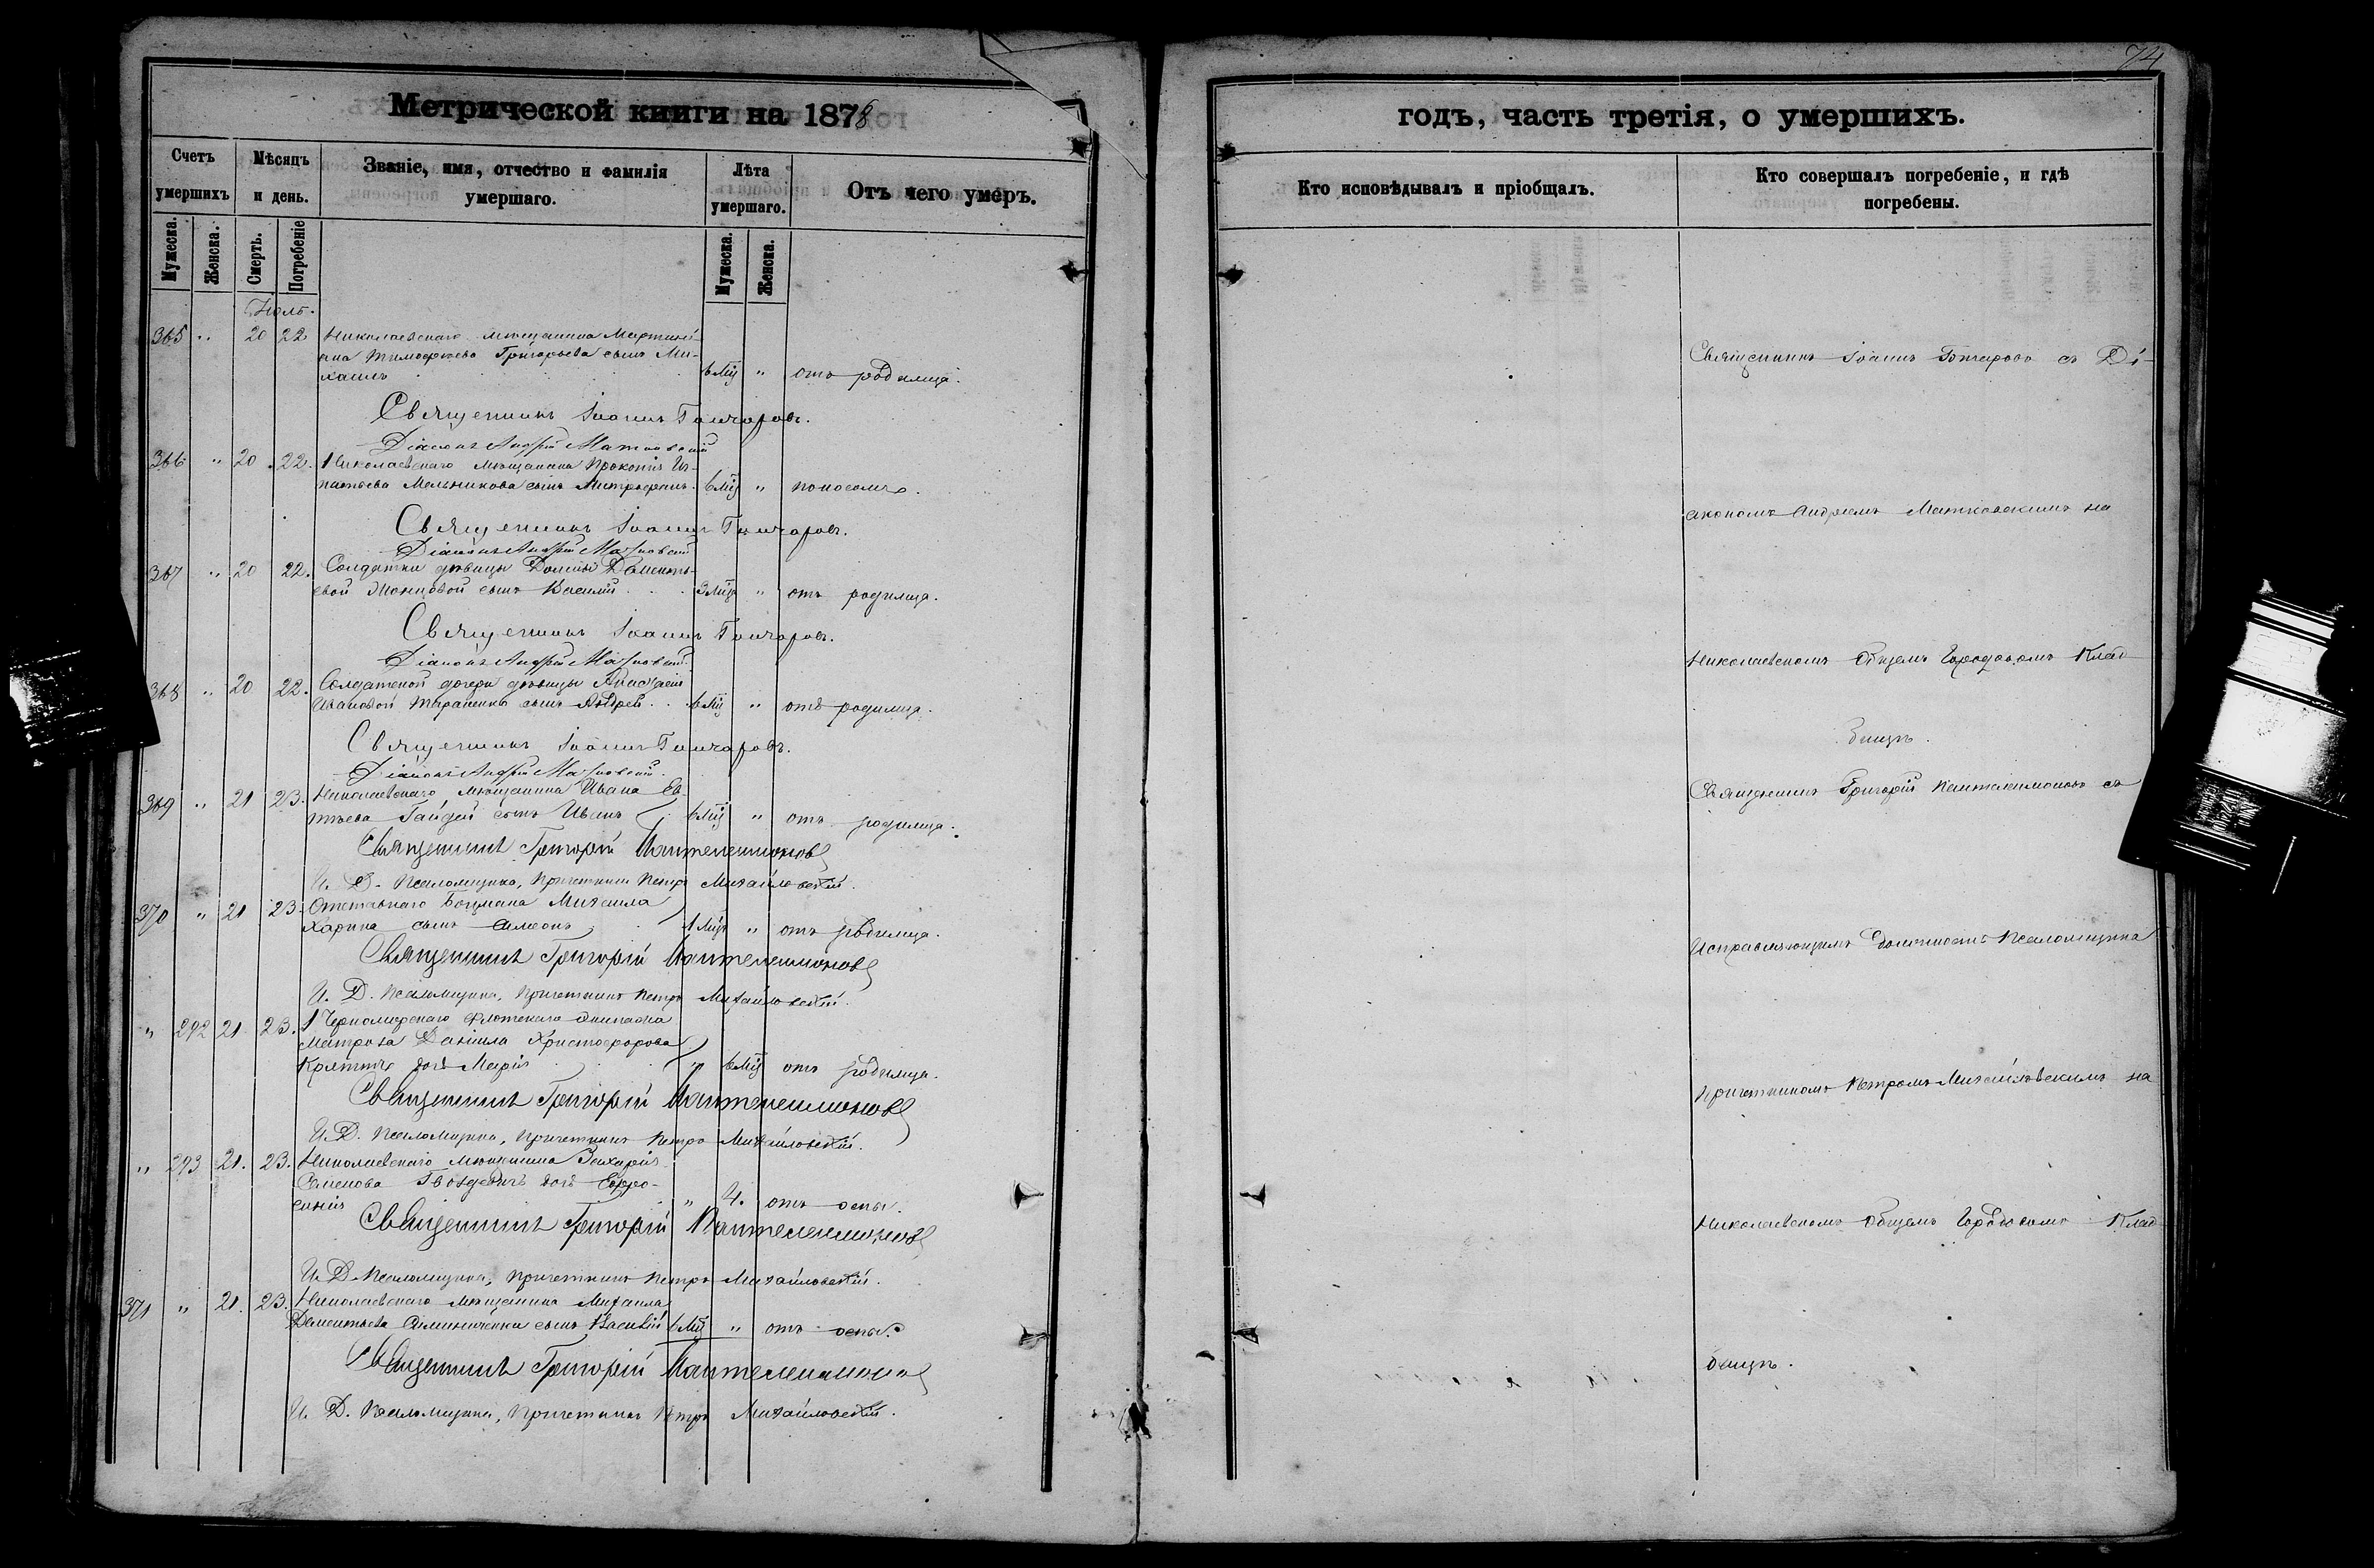 74
Метрической книги на 1878
годъ, часть третія, о умершихъ.
Счетъ умершихъ
Мѣсяцъ и день.
Званіе, имя, отчество и фамилія умершаго.
Лѣта умершаго.
Отъ чего умеръ.
Кто исповѣдывалъ и пріобщалъ.
Кто совершалъ погребеніе, и гдѣ погребены.
Мужеска. Женска. Смерть. Погребеніе Мужеска. Женска.
Іюль.
365 " 20 22 Николаевскаго мѣщанина Мартині-
ана Тимофѣева Григорьева сынъ Ми-
хаилъ 6 мц " отъ родимца.
Священникъ Іоаннъ Гончаровъ.
Діаконъ Андрей Матковскій
366 " 20 22. Николаевскаго мѣщанина Прокопія Иг-
натьева Мельникова сынъ Митрофанъ. 6 мц " поносомъ.
Священникъ Іоаннъ Гончаровъ.
Діаконъ Андрей Матковскій
367 " 20 22. Солдатки дѣвицы Домны Дементь-
евой сынъ Василій 3 мц " отъ родимца.
Священникъ Іоаннъ Гончаровъ.
Діаконъ Андрей Матковскій
368 " 20 22. Солдатской дочери дѣвицы Анастасіи
Ивановой сынъ Андрей 6 мц " отъ родимца.
Священникъ Іоаннъ Гончаровъ.
Діаконъ Андрей Матковскій.
369 " 21 23. Николаевскаго мѣщанина Ивана Ев-
тѣева Гайдей сынъ Иванъ 6 мц " отъ родимца.
Священникъ Григорій Пантелеимоновъ
И. Д. Псаломщика, Причетникъ Петръ Михайловскій.
370 " 21 23. Отставнаго Боцмана Михаила
Харина сынъ Симеонъ 1 мцъ " отъ родимца.
Священникъ Григорій Пантелеимоновъ
И. Д. Псаломщика, Причетникъ Петръ Михайловскій.
" 292 21 23. 1 Черноморскаго Флотскаго Экипажа
Матроза Даніила Христофорова
дочь Марія " 6 мц отъ родимца.
Священникъ Григорій Пантелеимоновъ
И. Д. Псаломщика, Причетникъ Петръ Михайловскій.
" 293 21. 23. Николаевскаго мѣщанина Захарія
Семенова дочь Евфро-
синія " 4. отъ оспы.
Священникъ Григорій Пантелеимоновъ
И. Д. Псаломщика, Причетникъ Петръ Михайловскій.
371 " 21. 23. Николаевскаго мѣщанина Михаила
Дементьева сынъ Василій 6 мц " отъ оспы.
Священникъ Григорій Пантелеимоновъ
И. Д. Псаломщика, Причетникъ Петръ Михайловскій.
Священникъ Іоаннъ Гончаровъ съ Ді-
акономъ Андреемъ Матковскимъ на
Николаевскомъ общемъ Городовомъ Клад-
бищѣ.
Священникъ Григорій Пантелеимоновъ съ
Исправляющимъ должность Псаломщика
Причетникомъ Петромъ Михайловскимъ на
Николаевскомъ общемъ Городовомъ Клад-
бищѣ.